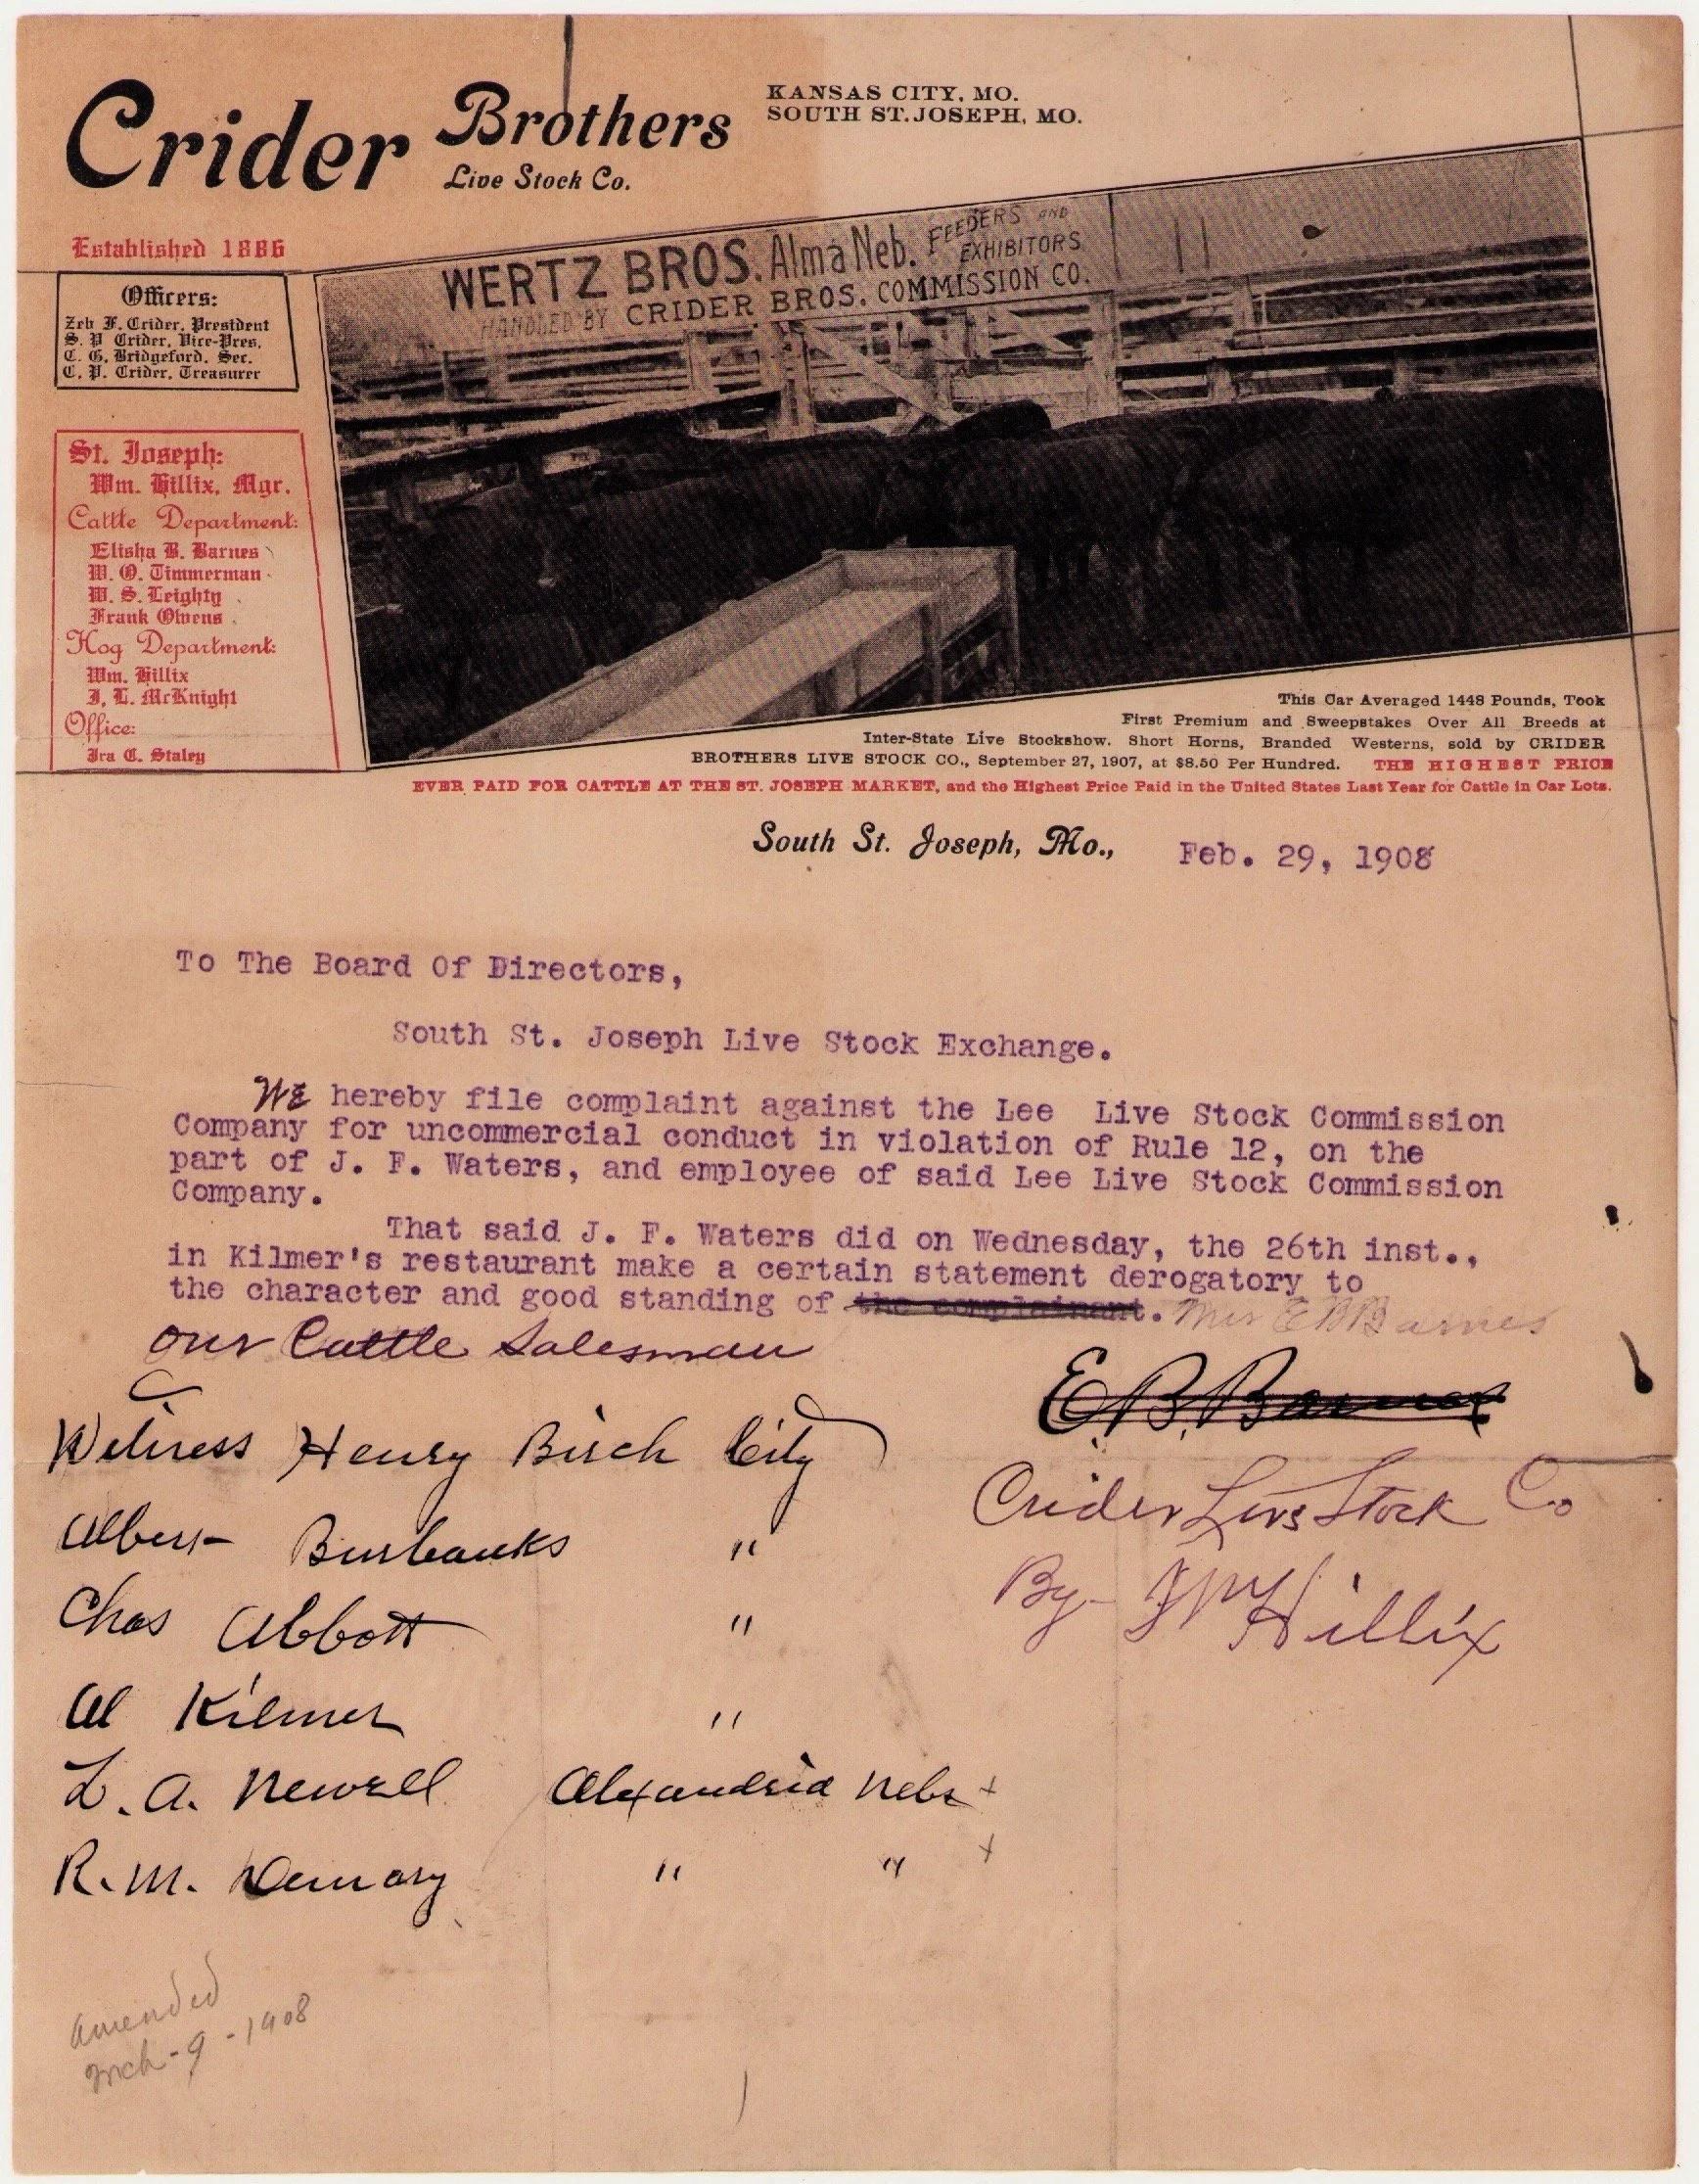 Crider Brothers
Live Stock Co.
KANSAS CITY, MO.
SOUTH ST. JOSEPH, MO.
Established 1886
Officers:
Zeb F. Crider, President
S. P. Crider, Vice-Pres.
C. G. Bridgeford, Sec.
C. P. Crider, Treasurer
St. Joseph:
Wm. Hillix, Mgr.
Cattle Department:
Elisha B. Barnes
W. O. Timmerman
W. S. Leighty
Frank Owens
Hog Department:
Wm. Hillix
J. L. McKnight
Office:
Ira C. Staley
WERTZ BROS. Alma Neb. FEEDERS AND
EXHIBITORS
HANDLED BY CRIDER BROS. COMMISSION CO.
This Car Averaged 1448 Pounds, Took
First Premium and Sweepstakes Over All Breeds at
Inter-State Live Stockshow. Short Horns, Branded Westerns, sold by CRIDER
BROTHERS LIVE STOCK CO., September 27, 1907, at $8.50 Per Hundred. THE HIGHEST PRICE
EVER PAID FOR CATTLE AT THE ST. JOSEPH MARKET, and the Highest Price Paid in the United States Last Year for Cattle in Car Lots.
South St. Joseph, Mo., Feb. 29, 1908
To The Board Of Directors,
South St. Joseph Live Stock Exchange.
WE hereby file complaint against the Lee Live Stock Commission
Company for uncommercial conduct in violation of Rule 12, on the
part of J. F. Waters, and employee of said Lee Live Stock Commission
Company.
That said J. F. Waters did on Wednesday, the 26th inst.,
in Kilmer's restaurant make a certain statement derogatory to
the character and good standing of the complainant. Mr E B Barnes
our Cattle Salesman
E. B. Barnes
Witness Henry Birch City
Crider Live Stock Co
Albert Burbanks "
By- Wm Hillix
Chas Abbott "
Al Kilmer "
L. A. Newell Alexandria Nebr +
R. M. Demary " " +
Amended
Mch-9-1908